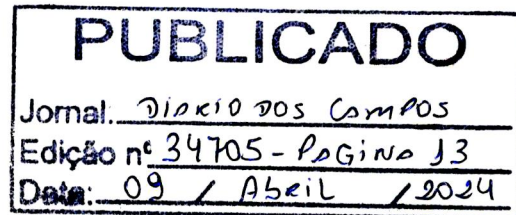 PUBLICADO
Jornal: DIARIO DOS CAMPOS
Edição nº 34705 - PAGINA 13
Data: 09 / Abril / 2024